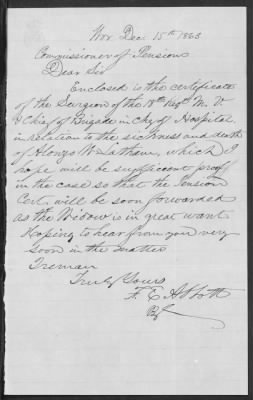 Wor. Dec. 15th 1863
Commissioner of Pensions
Dear Sir
Enclosed is the certificate
of the Surgeon of the 18th Regt M. V.
& Chief of Brigade in chg of Hospital,
in relation to the sickness and death
of Alonzo W. Latham, which I
hope will be sufficient proof
in the case so that the Pension
Cert. will be soon forwarded
as the Widow is in great want
Hoping to hear from you very
soon in the matter
I remain
Truly Yours
F. E. Abbott